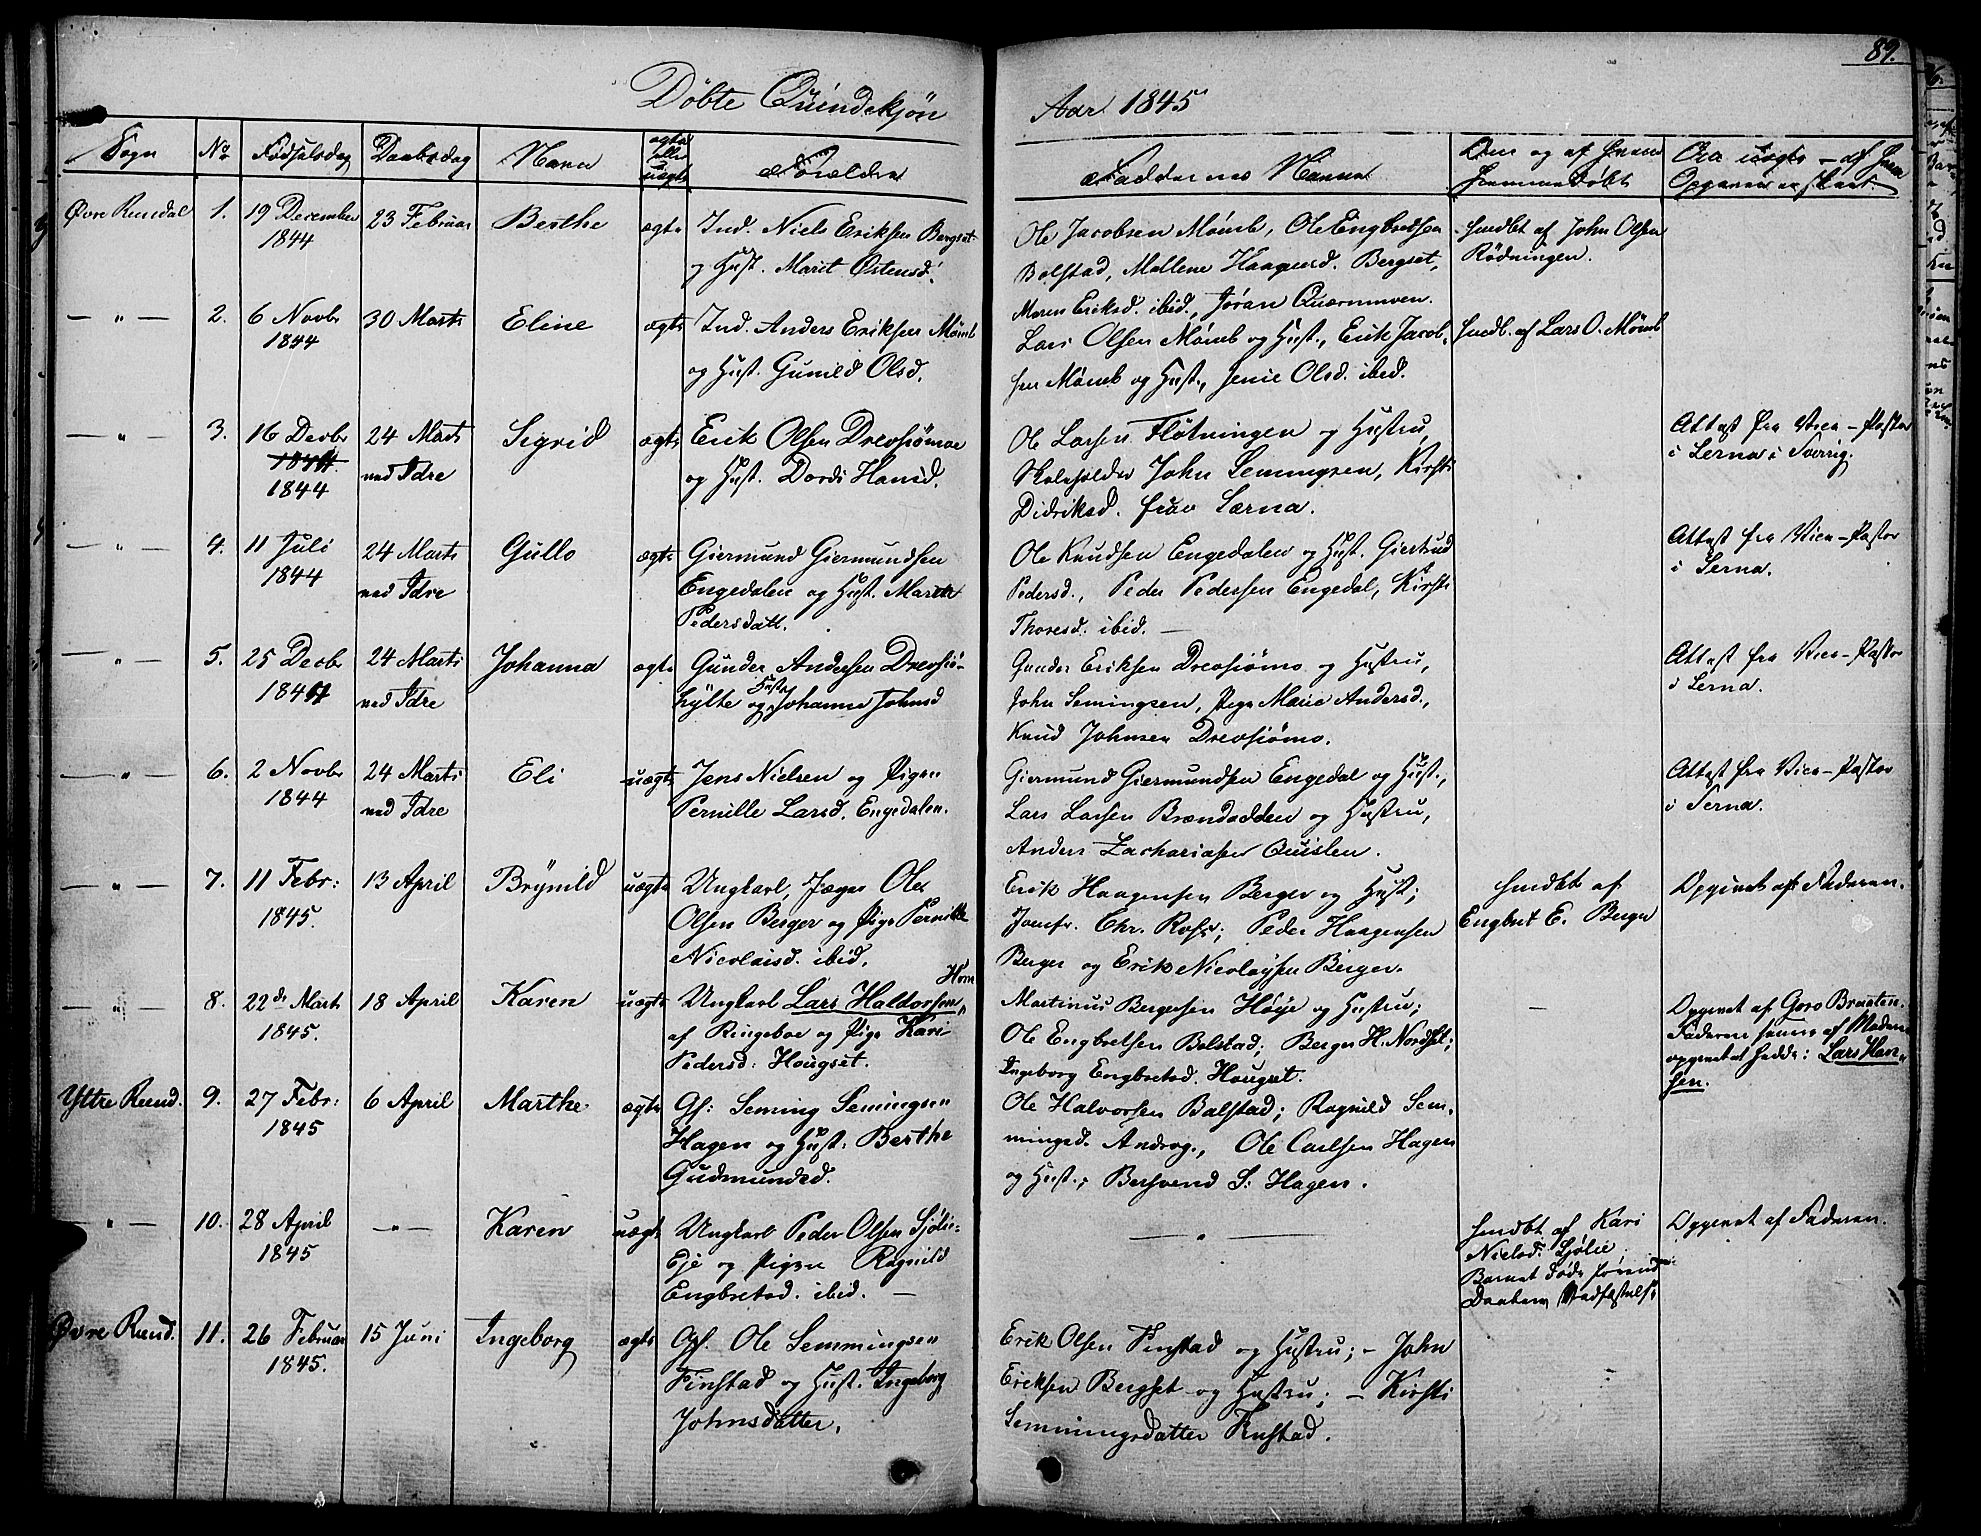 89.
Döbte Quindekjön Aar 1845
Sogn No Födselsdag Daabsdag Navn ægte eller uægte Forældre Faddernes Navne Om og af hvem hjemmedöbt Om uægte – af hvem Opgaven er skeet.
Øvre Rendal 1. 19 December 1844 23 Februar Berthe ægte Ind. Niels Eriksen Bergset
og Hust. Marit Østensd.
Ole Jacobsen Mömb, Ole Engbretsen
Bolstad, Mallene Haagensd. Bergset,
Maren Eriksd. ibid., Jöran Quærnmoen.
hmdbt af John Olsen
Rödningen.
— " — 2. 6 Novbr 1844 30 Marts Eline ægte Ind. Anders Eriksen Mömb
og Hust. Gunild Olsd.
Lars Olsen Mömb og Hust., Erik Jacob-
sen Mömb og Hust., Jenie Olsd. ibid.
hmdb. af Lars O. Mömb
— " — 3. 16 Decbr 1844 24 Marts ved Idre Sigrid ægte Erik Olsen Drevsiömoe
og Hust. Dordi Hansd.
Ole Larsen Flötningen og Hustru,
Skoleholder John Semmingsen, Kirsti
Didriksd. fra Særna.
Attest fra Vice-Pastor
i Serna i Sverrig.
— " — 4. 11 Juli 1844 24 Marts ved Idre Gullo ægte Giermund Giermundsen
Engedalen og Hust. Marthe
Pedersdatt.
Ole Knudsen Engedalen og Hust. Giertrud
Pedersd., Peder Pedersen Engedal, Kirsti
Thoresd. ibid. —
Attest fra Vice-Pastor
i Serna.
— " — 5. 25 Decbr 1844 24 Marts ved Idre Johanna ægte Gunder Andersen Drevsiö-
hylte og Hust. Johanne Johnsd
Gunder Eriksen Drevsiömo og Hustru,
John Semingsen, Pige Marie Andersd.,
Knud Johnsen Drevsiömo.
Attest fra Vice-Pastor
i Serna.
— " — 6. 2 Novbr 1844 24 Marts ved Idre Eli uægte Jens Nielsen og Pigen
Pernille Larsd. Engedalen.
Giermund Giermundsen Engedal og Hust.,
Lars Larsen Brændodden og Hustru,
Anders Zachariasen Quislen.
Attest fra Vice-Pastor
i Serna.
— " — 7. 11 Febr: 1845. 13 April Brynild uægte Ungkarl, Jæger Ole
Olsen Berger og Pige Pernille
Nicolaisd. ibid.
Erik Haagensen Berger og Hust;
Jomfr. Chr. Ross; Peder Haagensen
Berger og Erik Nicolaysen Berger.
hmdbt af
Engbret E. Berger
Opgivet af Faderen.
— " — 8. 22de Marts 1845. 18 April Karen uægte Ungkarl Lars Haldorsen Horn
af Ringeboe og Pige Kari
Pedersd: Hougset.
Martinus Bergersen Höye og Hustru;
Ole Engbretsen Bolstad; Berger H. Nordset;
Ingeborg Engbretsd. Hougset.
—
Opgivet af Goro Braaten.
Faderen senere af Moderen
opgivet hedde: Lars Han-
sen.
Yttre Rend. 9. 27 Febr: 1845 6 April Marthe ægte Gf: Seming Semingsen
Hagen og Hust: Berthe
Gudmundsd.
Ole Halvorsen Balstad; Ragnild Sem-
mingsd. Androg., Ole Carlsen Hagen
og Hust.; Bersvend S: Hagen.
— " — 10. 28 April 1845 — " — Karen uægte Ungkarl Peder Olsen Sjölie-
Eje og Pigen Ragnild
Engbretsd. ibid. —
— " —
hmdbt af Kari
Nielsd: Sjölie
Barnet döde förend
Daabens Stadfæstelse
Opgivet af Faderen.
Øvre Rend. 11. 26 Februar 1845. 15 Juni Ingeborg ægte Gf. Ole Semmingsen
Finstad og Hust. Ingeborg
Johnsdatter.
Erik Olsen Finstad og Hustru; – John
Eriksen Bergset og Hustru; – Kirsti
Semmingsdatter Finstad.